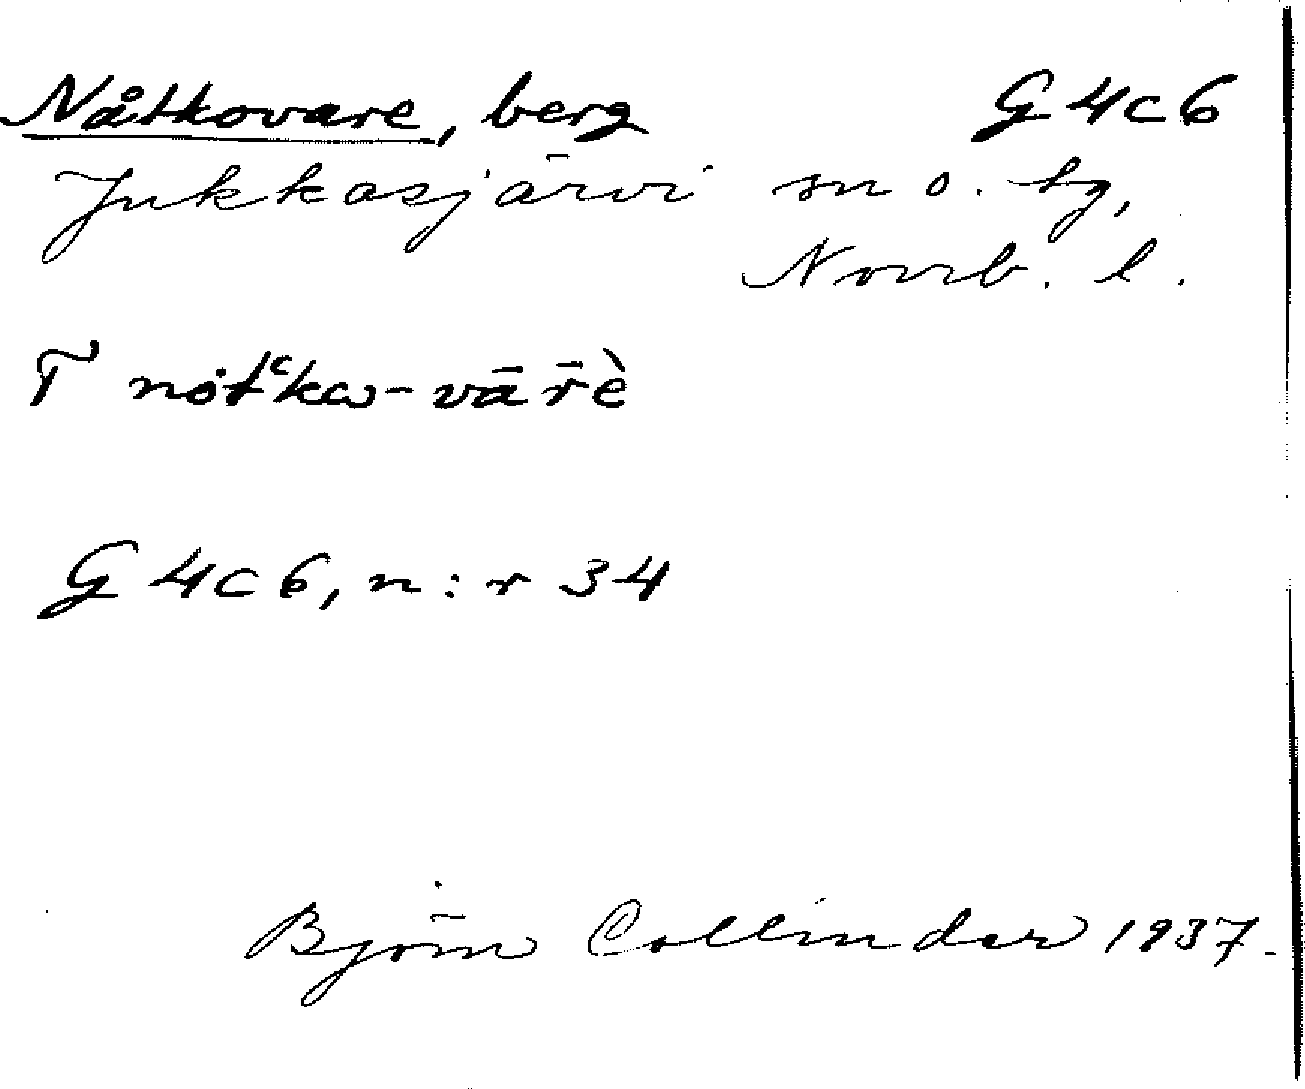 Nåtkovare, berg G4c6
Jukkasjärvi sn o. tg,
Norrb. l.
T nȯt̔kω-vār̄è
G 4c6, n:r 34
Björn Collinder 1937.